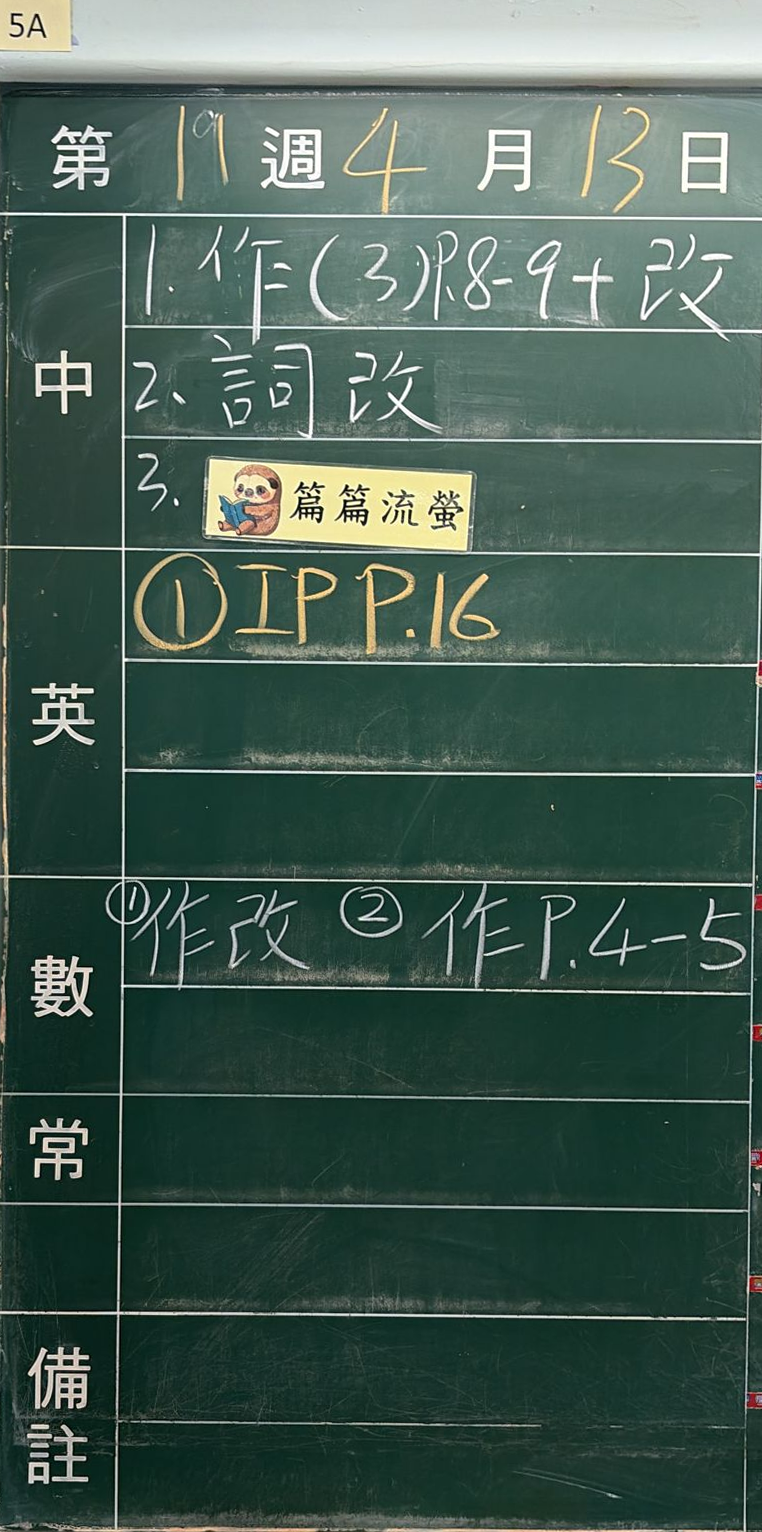 5A
第 19 週 4 月 13 日
中
1. 作(3)P.8-9+改
2、詞改
3. 篇篇流螢
英
①IP P.16
數
①作改 ②作P.4-5
常
備註